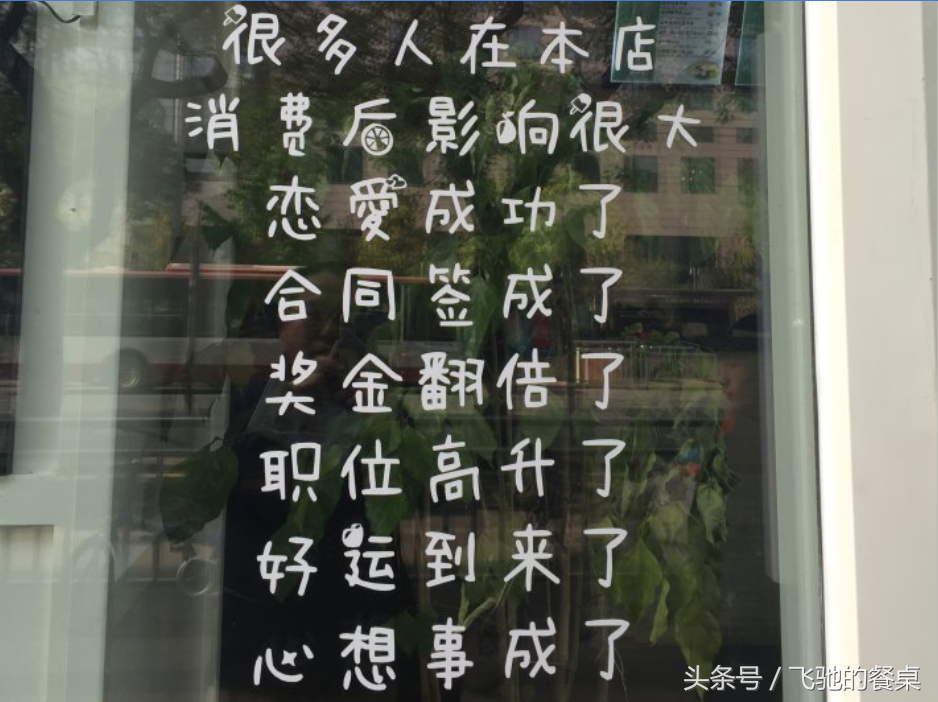 很多人在本店
消费后影响很大
恋愛成功了
合同签成了
奖金翻倍了
职位高升了
好运到来了
心想事成了
头条号 / 飞驰的餐桌